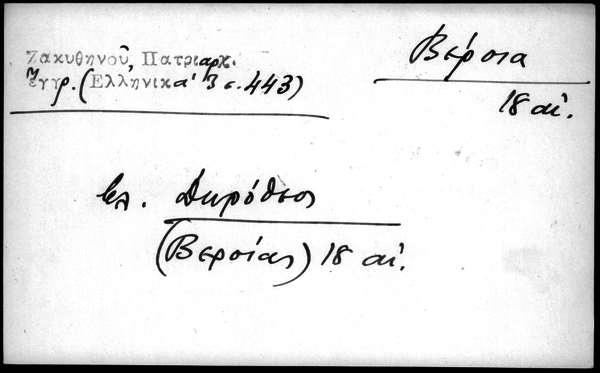 Ζακυθηνοῦ, Πατριαρχ.
ἔγγρ. (Ἑλληνικά 3 σ. 443)
Βέροια
18 αἰ.
βλ. Δωρόθεος
(Βεροίας) 18 αἰ.